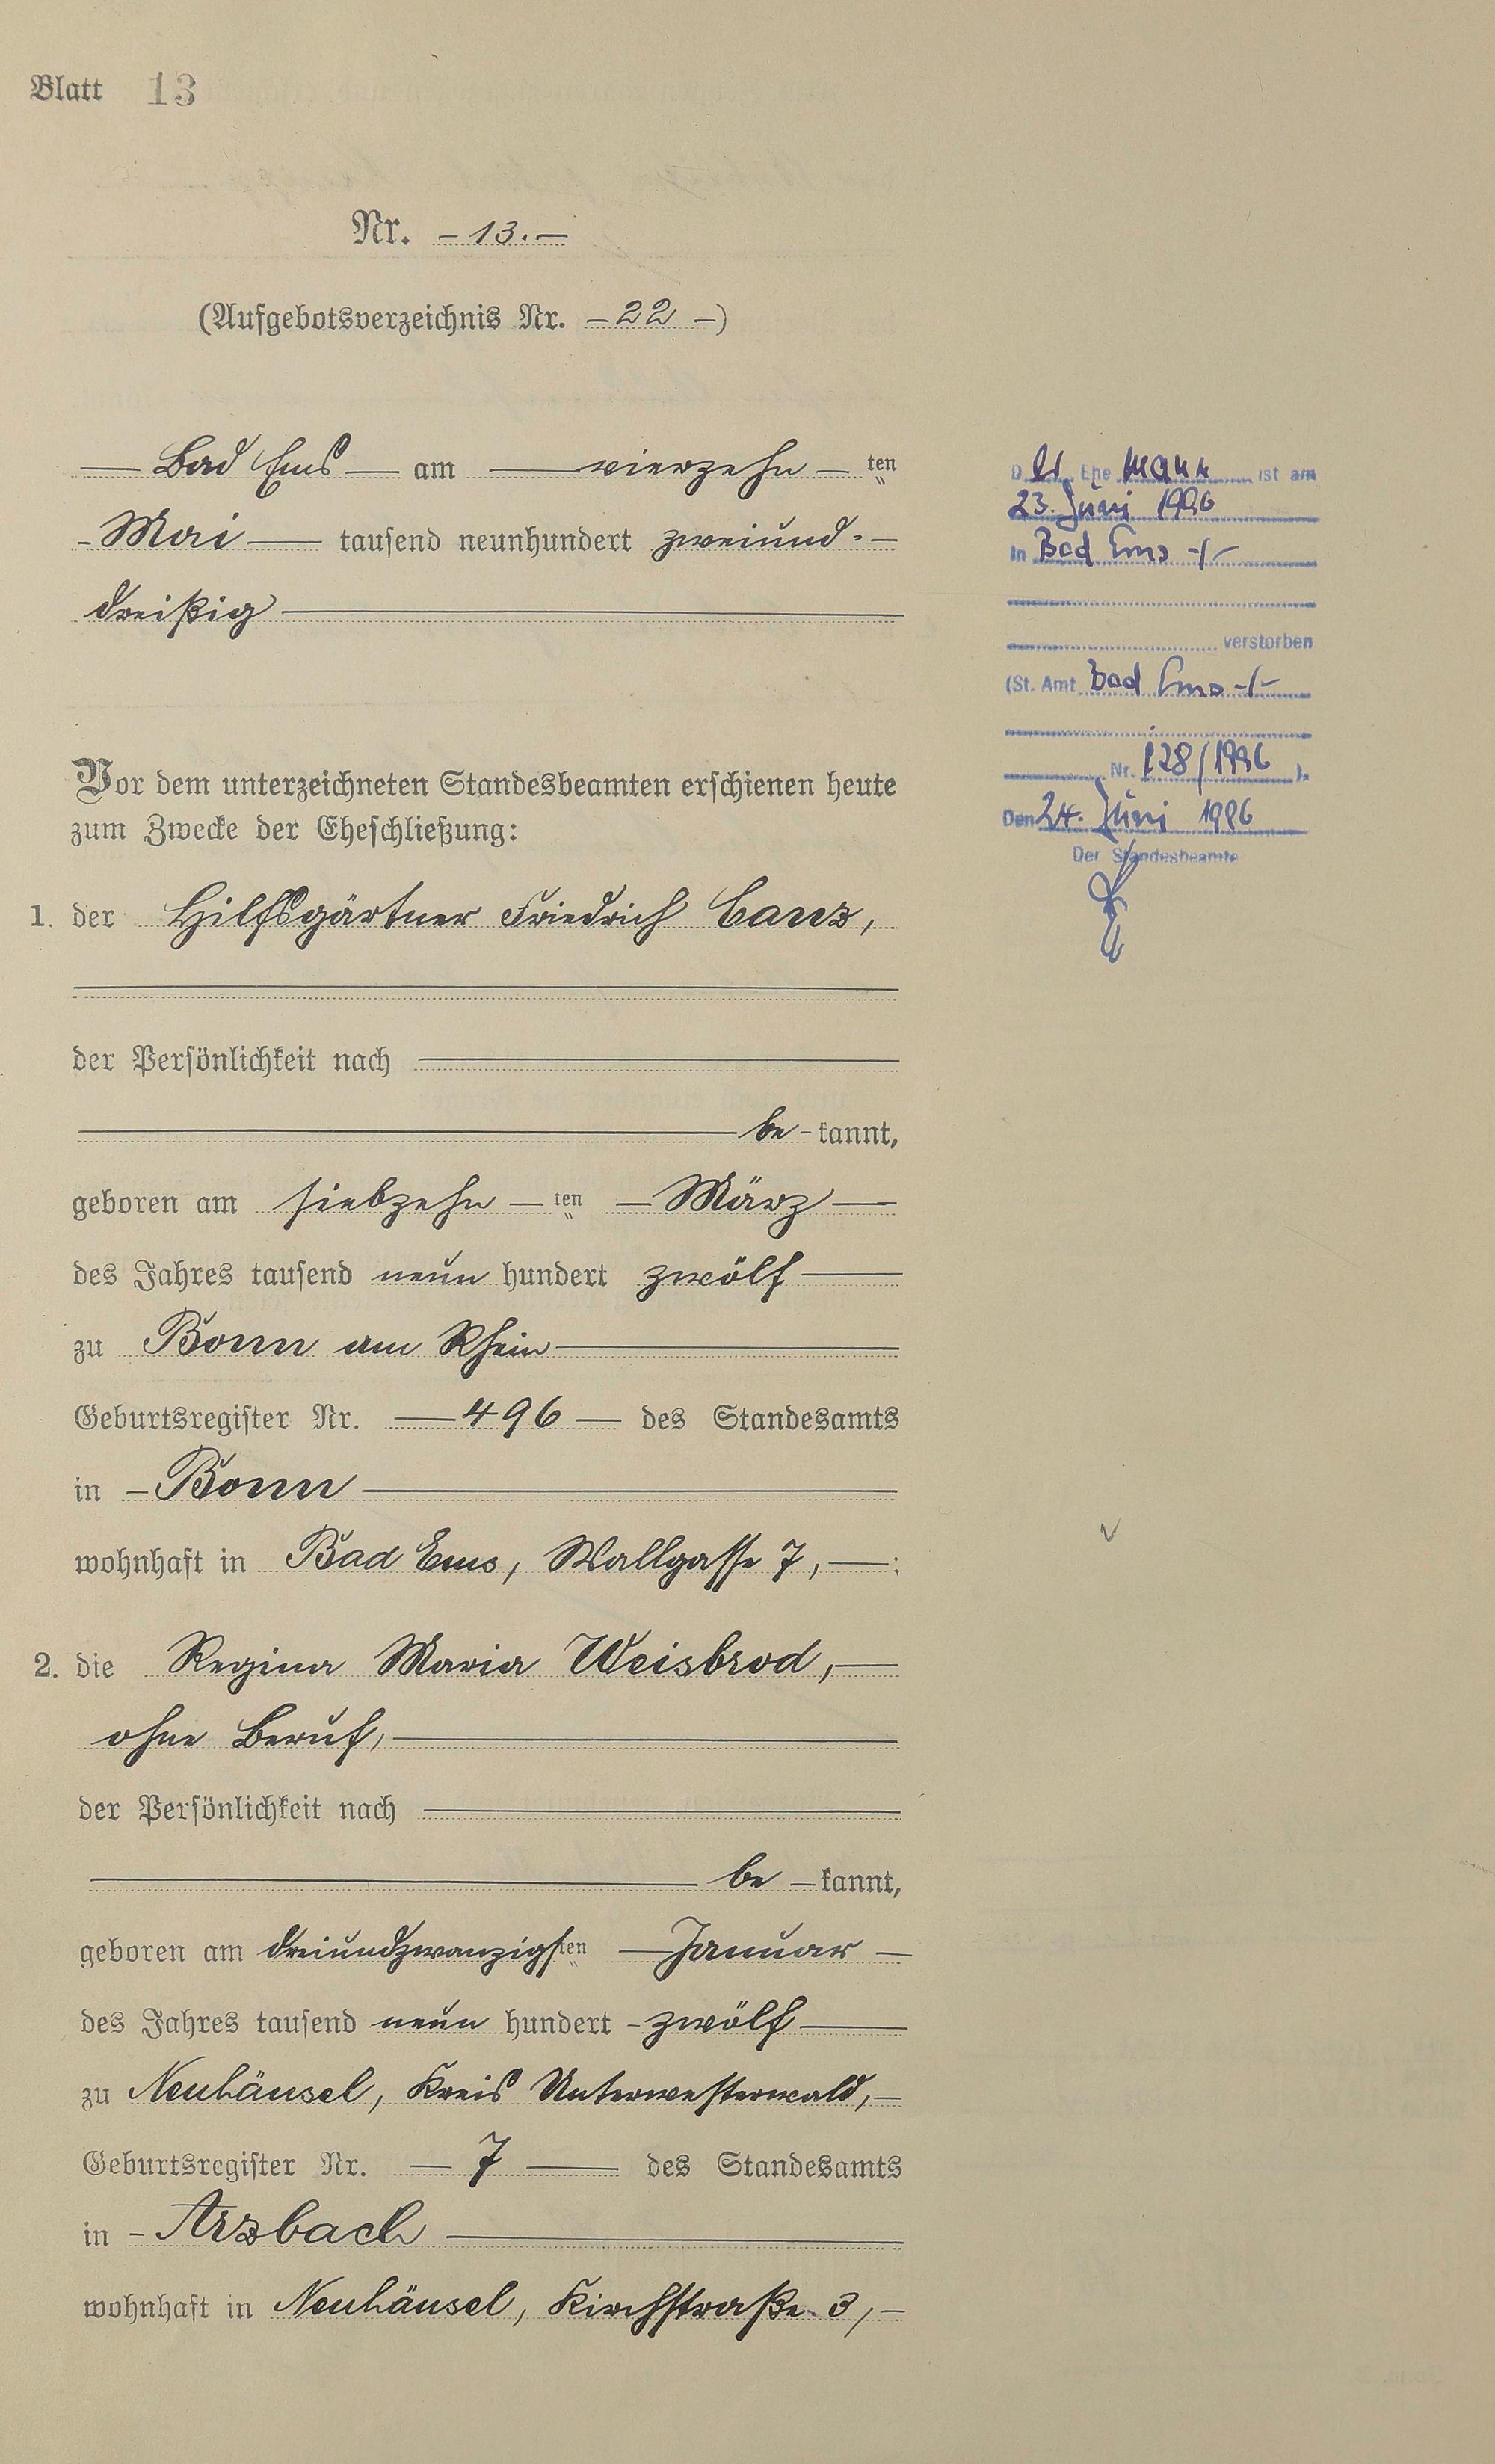 Blatt 13
Nr. – 13. –
(Aufgebotsverzeichnis Nr. – 22 –)
— Bad Ems — am — vierzehn – ten
– Mai — tausend neunhundert zweiund- –
dreißig —
Vor dem unterzeichneten Standesbeamten erschienen heute
zum Zwecke der Eheschließung:
1. der Hilfsgärtner Friedrich Canz,
der Persönlichkeit nach —
— be - kannt,
geboren am siebzehn – ten – März —
des Jahres tausend neun hundert zwölf —
zu Bonn am Rhein —
Geburtsregister Nr. — 496 — des Standesamts
in – Bonn —
wohnhaft in Bad Ems, Wallgasse 7, — ;
2. die Regina Maria Weisbrod, —
ohne Beruf, —
der Persönlichkeit nach —
— be – kannt,
geboren am dreiundzwanzigsten — Januar —
des Jahres tausend neun hundert - zwölf —
zu Neuhäusel, Kreis Unterwesterwald, –
Geburtsregister Nr. — 7 — des Standesamts
in - Arzbach —
wohnhaft in Neuhäusel, Kirchstraße 3, –
D er Ehe mann ist am
23. Juni 1996
in Bad Ems -/-
verstorben
(St. Amt Bad Ems -/-
Nr. 128/1996 ).
Den 24. Juni 1996
Der Standesbeamte